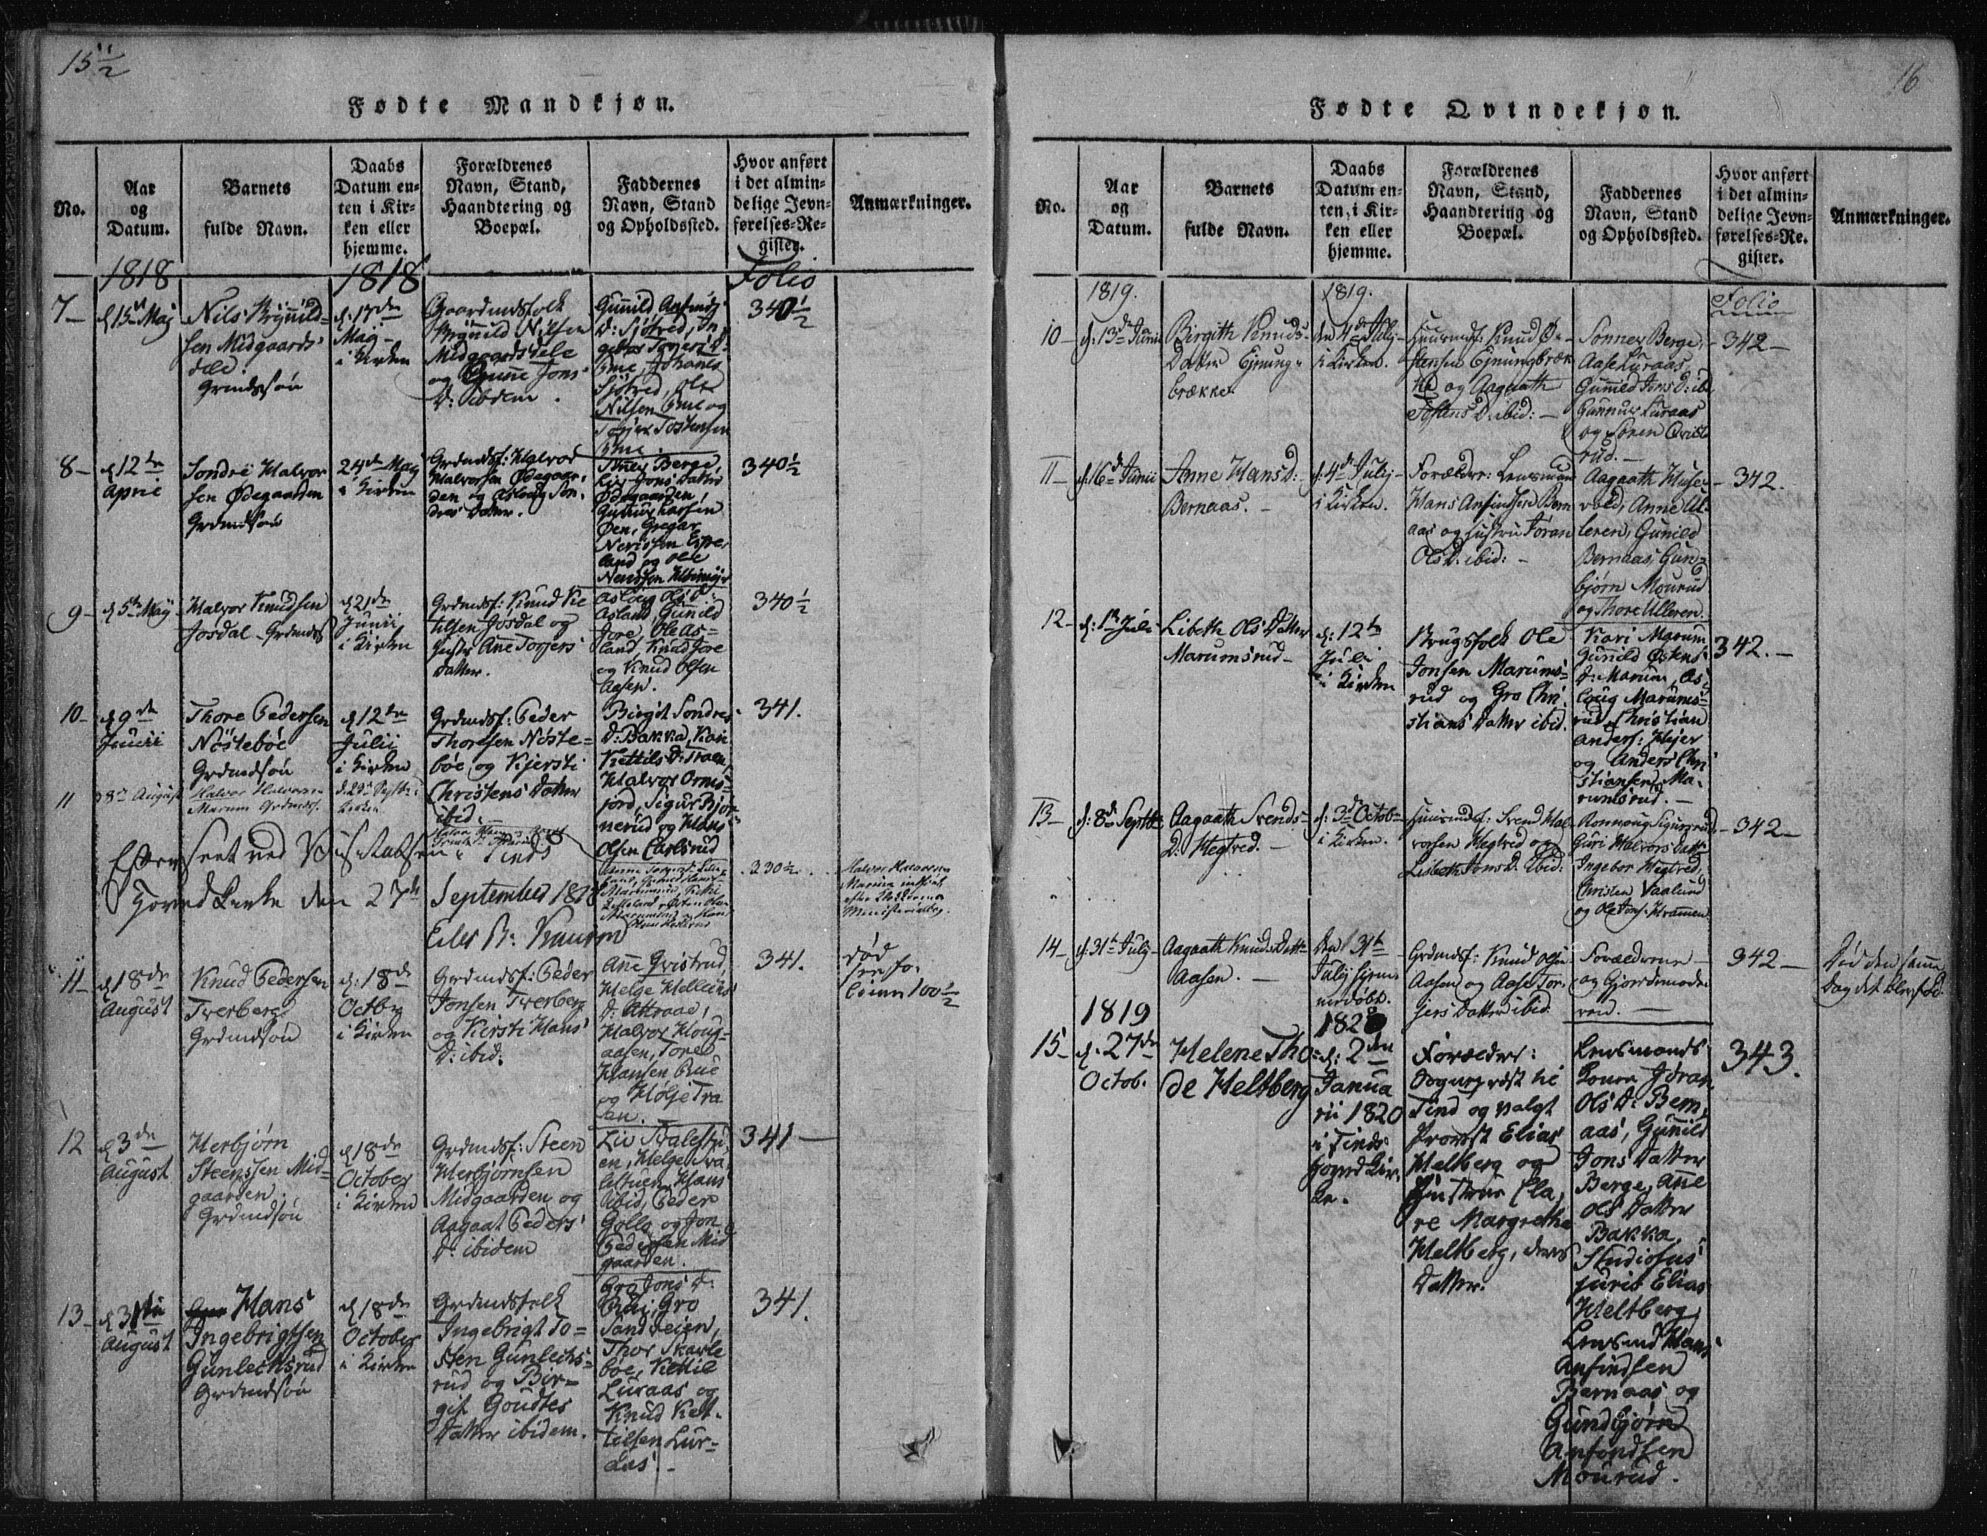 15 1/2
Fødte Mandkjøn.
No.
Aar
og
Datum.
Barnets
fulde Navn.
Daabs
Datum en-
ten i Kir-
ken eller
hjemme.
Forældrenes
Navn, Stand,
Haandtering og
Boepæl.
Faddernes
Navn, Stand
og Opholdssted.
Hvor anført
i det almin-
delige Jevn-
førelses-Re-
gister.
Anmærkninger.
1818
1818
Folio
7
d 15de Maj
Nils Brÿnild-
sen Midgaards-
dele
Grdmdssøn
d: 17de
Maj
i Kirken
Gaardmdsfolk
Brÿnild Nilsen
Midgaardsdele
og Jons
D: ibidem.
Gunild
D: Sjøtved,
Johanes
Sjøtved, Ole
Nilsen Bme og
Torjer Tostensen
Bme.
340 1/2
8
d 12te
April
Sondre Halvor
sen Ødegaarden
Grdmdssøn
24de Maj
i Kirken
Grdmdsf: Halvor
Halvorsen Ødegaar-
den og Aslaug Son-
dres Datter.
Berge,
Liv Jons Datter
Ødegaarden,
Gunnur Larsen
Øen, Gregar
land og Ole
340 1/2
9
d 5te Maÿ
Halvor Knudsen
Josdal Grdmds
d 21de
Junii
i Kirken
Grdmdsf: Knud Ke
tilsen Josdal og
Hustr Ane Torjers
Datter.
Aslaug Ols D:
Asland, Gunild
Jore, Ole As-
land, Knud Jore
og Knud Olsen
Aasen.
340 1/2
10
d 9de
Junii
Thore Pedersen
Nöstebøe
Grdmdssøn
d 12te
Julii
i Kirken
Grdmdsf: Peder
Thoresen Nöste-
bøe og Kjersti
Christens Datter
ibid.
Birgit Sondres
D: Bakka, Kari
Kettils D: Traen,
Halvor Orms-
jord, Sigur Bjor
nerud og Hans
Olsen Carlsrud
341.
11
8de August
Halvor Halvorsen
Marum Grdmdss.
d. 29de Septbr:
Kirken
330 1/2
Halvor Halvorsen
Marum
Efterseet ved Visitatsen i Tinds
Hovedkirke den 27de September 1818
11
d 18de
August
Knud Pedersen
Tverberg
Grdmdssøn
d: 18de
Octbr
i Kirken
Grdmdsf: Peder
Jonsen Tverberg
og Kirsti Hans
D: ibid:
Ane Qvistrud,
Helge Hellies
D: Attraae,
Halvor Houg-
aasen, Tore
Hansen Bue
og Hölje Tra
aen.
341.
død
see fo-
leien 100 1/2
12
d 3de
August
Herbjørn
Steensen Mid-
gaarden
Grdmdssøn
d 18de
October
i Kirken
Grdmdsf: Steen
Herbjørnsen
Midgaarden og
Aagaat Peders
D: ibidem
Liv Dalestu-
en, Helge Da-
lestuen, Hans
ibid, Peder
Gollo og Jon
Pedersen Mid
gaarden.
341
13
d 31te
August
Hans
Ingebrigtsen
Gunleeksrud
Grdmdssøn
d 18de
October
i Kirken
Grdmdsfolk
Ingebrigt To-
sten Gunleiks-
rud og Bir-
git Goudtes
Datter ibidem.
Gro Jons D:
Bui, Gro
Sandveien,
Thor Skarle
bøe, Kettil
Luraas og
Knud Ket-
tilsen Lur-
aas.
341.
16
Fødte Qvindekjøn.
No.
Aar
og
Datum.
Barnets
fulde Navn.
Daabs
Datum en-
ten i Kir-
ken eller
hjemme.
Forældrenes
Navn, Stand,
Haandtering og
Boepæl.
Faddernes
Navn, Stand
og Opholdssted.
Hvor anført
i det almin-
delige Jevn-
førelses-Re-
gister.
Anmærkninger.
1819.
1819.
Folio
10
d. 13de Junii
Birgith Knuds-
Datter Ejnung-
brække
den 4de Julj
i Kirken.
Huusmdsf: Knud Ø-
stensen Ejnungbræk-
ke og Aagaath
D: ibid:
Sonner Berge,
Aase Luraas,
Gunild Jons D: ib
Gunnur Luraas
og Soren Qvist
rud.
342
11
d. 16de Junii
Anne Hans D:
Bernaas.
d. 4de Julj
i Kirken.
Forældre: Lensmand
Hans Anfindsen Bern
aas og Hustru Jøran
Ols D: ibid:
Aagaath Huse-
vold, Anne Ul-
leren, Gunild
Bernaas, Gun-
bjørn Mourud
og Thore Ulleren.
342.
12
d. 1te Juli
Lisbeth Ols Datter
Marumsrud
d: 12te
Juli
i Kirken
Brugsfolk Ole
Jonsen Marums-
rud og Gro Chri-
stians Datter ibid.
Kari Marum
Gunild Østens
D: Marum, As
loug Marums-
rud, Christian
Anders: Hejer
og Anders Chri
stiansen Ma-
rumsrud.
342.
13
d. 8de Septbr
Aagaath Svends-
D. Hegtred.
d. 3de Octob
i Kirken.
Huusmdsf: Svend Hal
vorsen Hegtred og
Lisbeth Jons D. ibid:
Ronnoug Sigursrud,
Guri Halvors Datt
Ingebor Hegtred,
Christen Vaalund
og Ole Jons: Kraamen
342
14
d. 31te Julj
Aagaath Knuds Datt
Aasen.
den 31te
Julj hjem-
medøbt.
Grdmdsf: Knud Olsen
Aasen og Aase Tor-
jers Datter ibid.
Forældrene
og Gjordemode-
ren.
342
Død den samme
Dag det blev fød.
1819
1820
15
d. 27de
Octob.
Helene Tho
de Heltberg
d: 2den
Janua
rii 1820
i Tinds
Hoved Kir-
ke.
Forældre:
Sognepræst til
Tind og valgt
Provst Elias
Heltberg og
Hustrue Cla-
re Margretha
Heltberg, deres
Datter.
Lensmands
Kone Jöran
Ols D: Bern-
aas, Gunild
Jons Datter
Berge, Ane
Ols Datter
Bakka,
Studiosus
juris Elias
Heltberg
Lensmd Hans
Anfindsen
Bernaas og
Gundbjørn
Anfindsen
Mourud.
343.